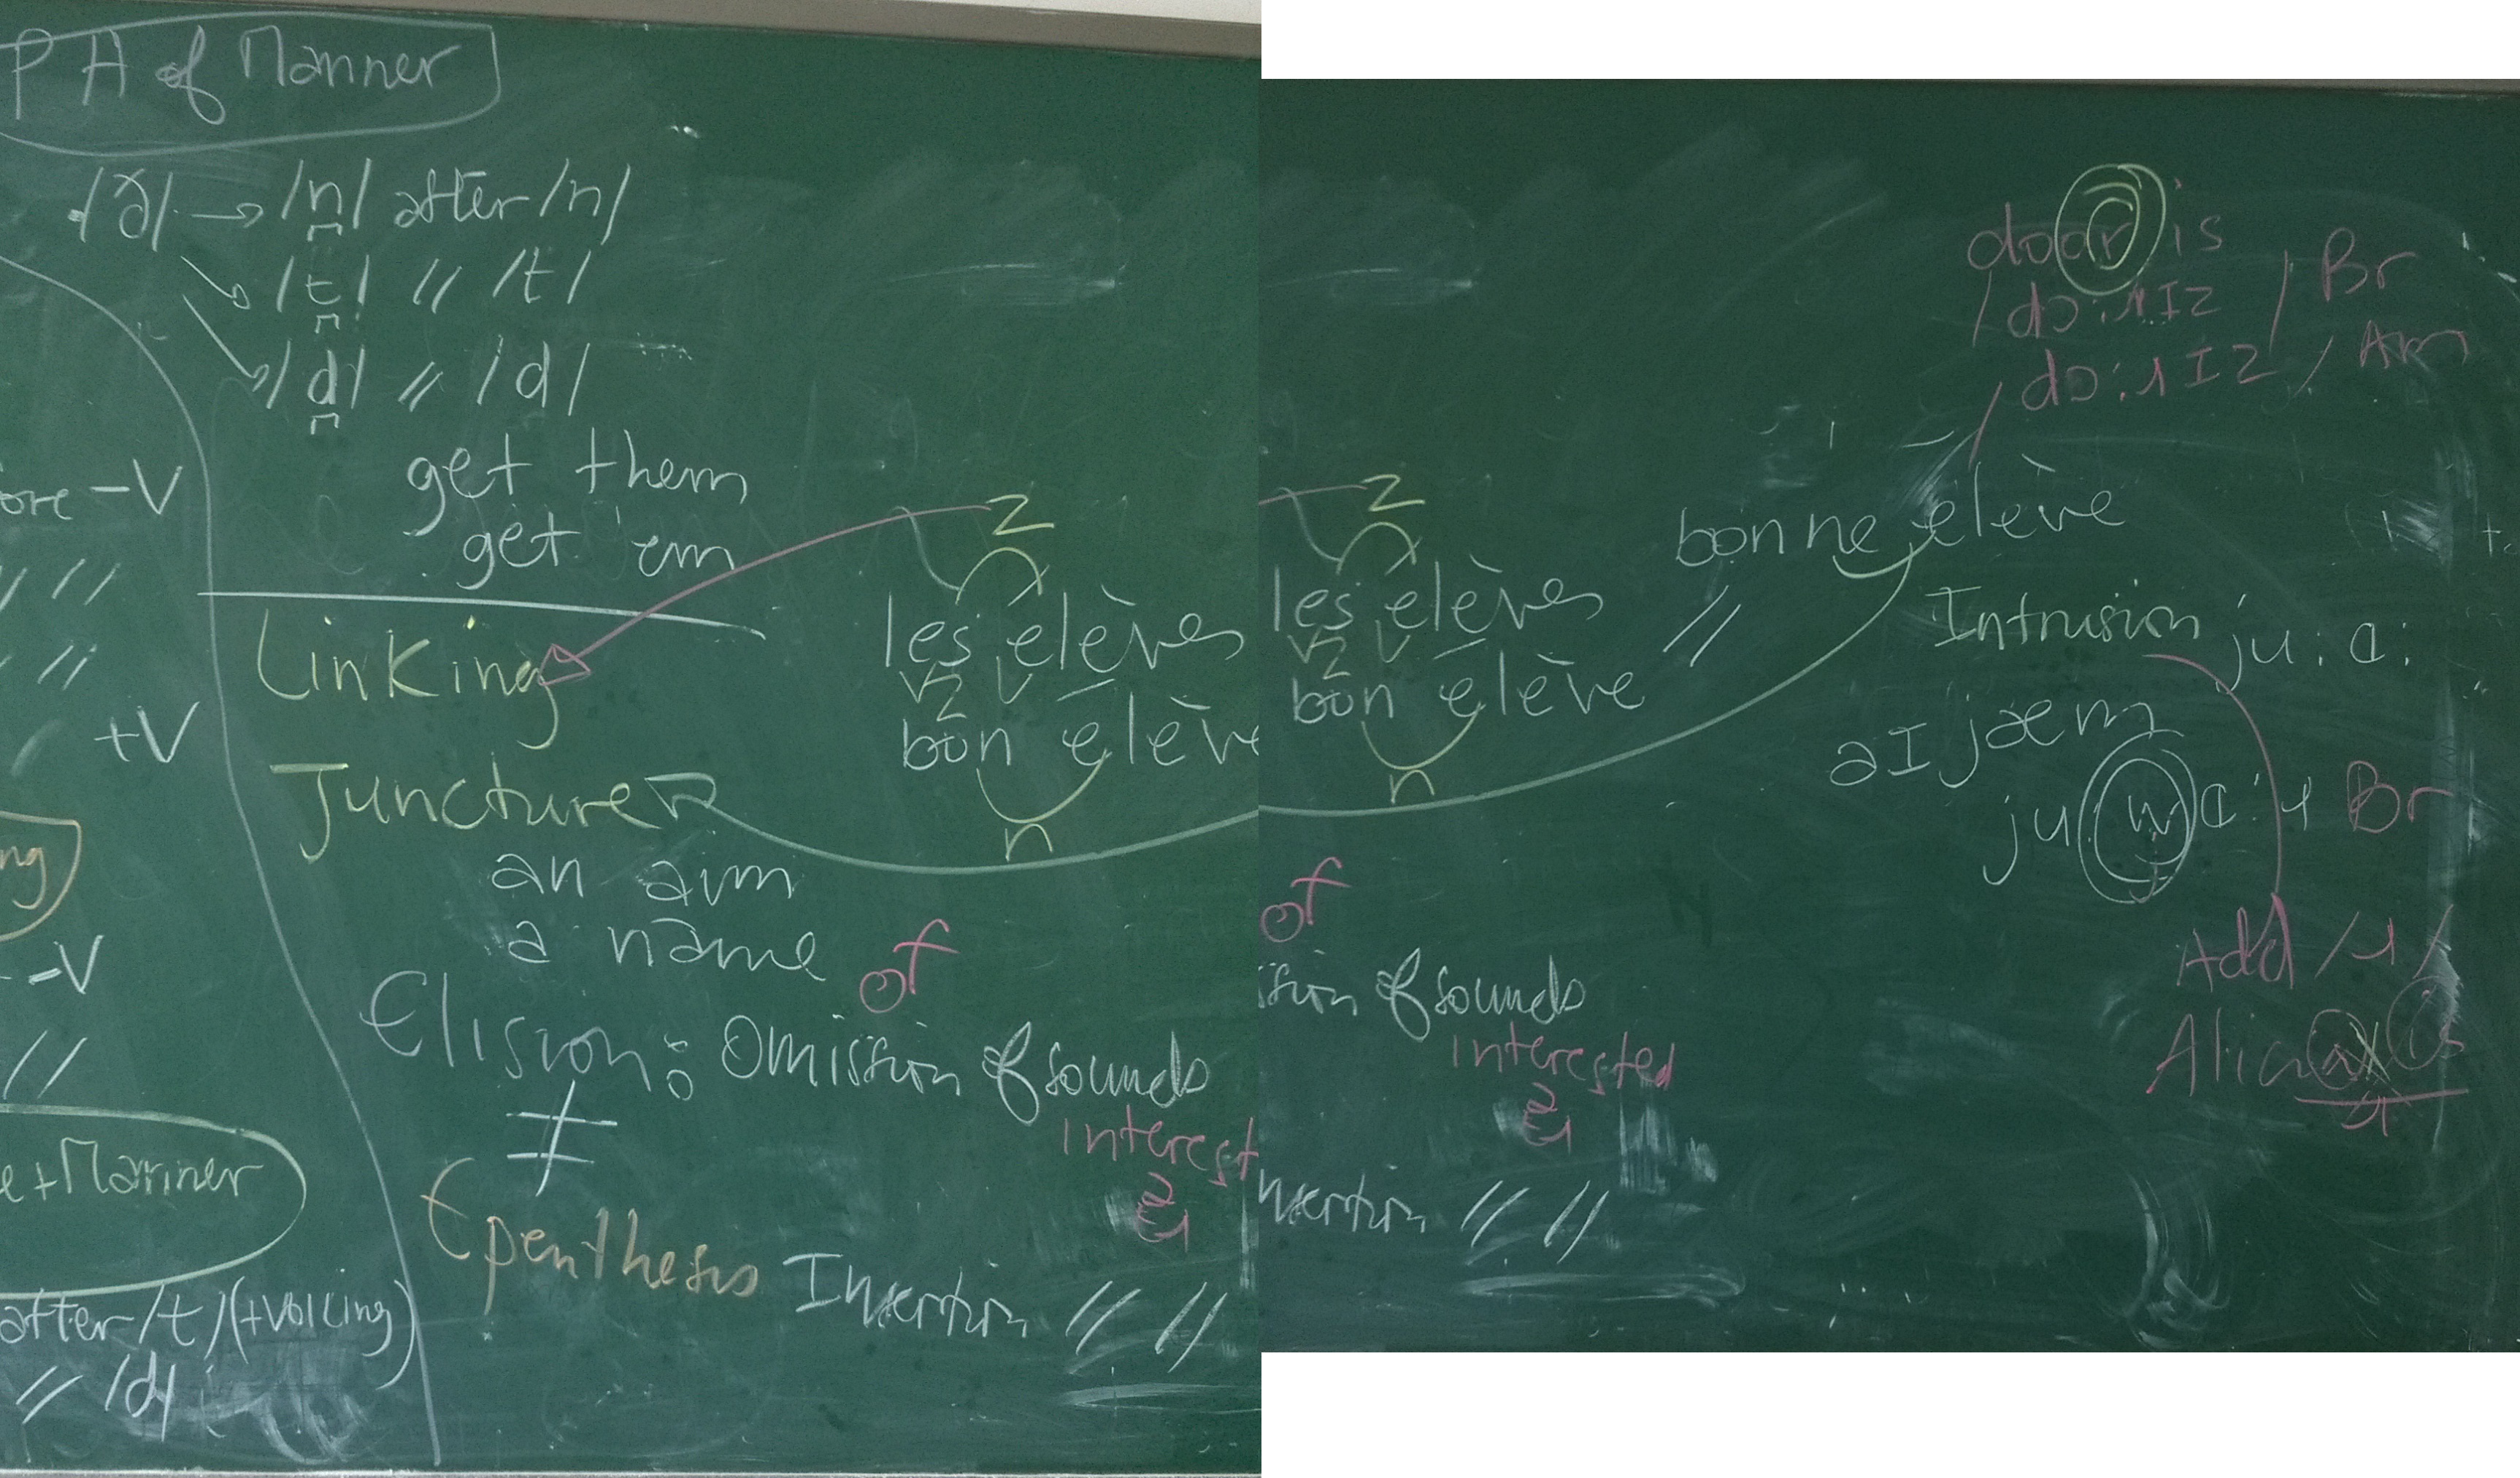 PA of Manner
/ð/ → /n̪/ after /n/
/t̪/ // /t/
/d̪/ // /d/
get them
get 'em
-V
// //
//
+V
ng
-V
//
e+Manner
after /t/ (+voicing)
// /d/
Linking
Juncture
an aim
a name
of
Elision: Omission of sounds
≠
interest
Epenthesis Insertion // //
z
les élèves
vz v
bon élève
n
z
les élèves
vz v
bon élève
n
//
bonne élève
door is
/dɔ:ɹIz/ Br
/dɔ:ɹIz/ Am
Intrusion
ju: ɑ:
aI jæm
ju: w ɑ: ɹ Br
Add /ɹ/
Alicia is
ɹ
of
ssion of sounds
interested
nsertion // //